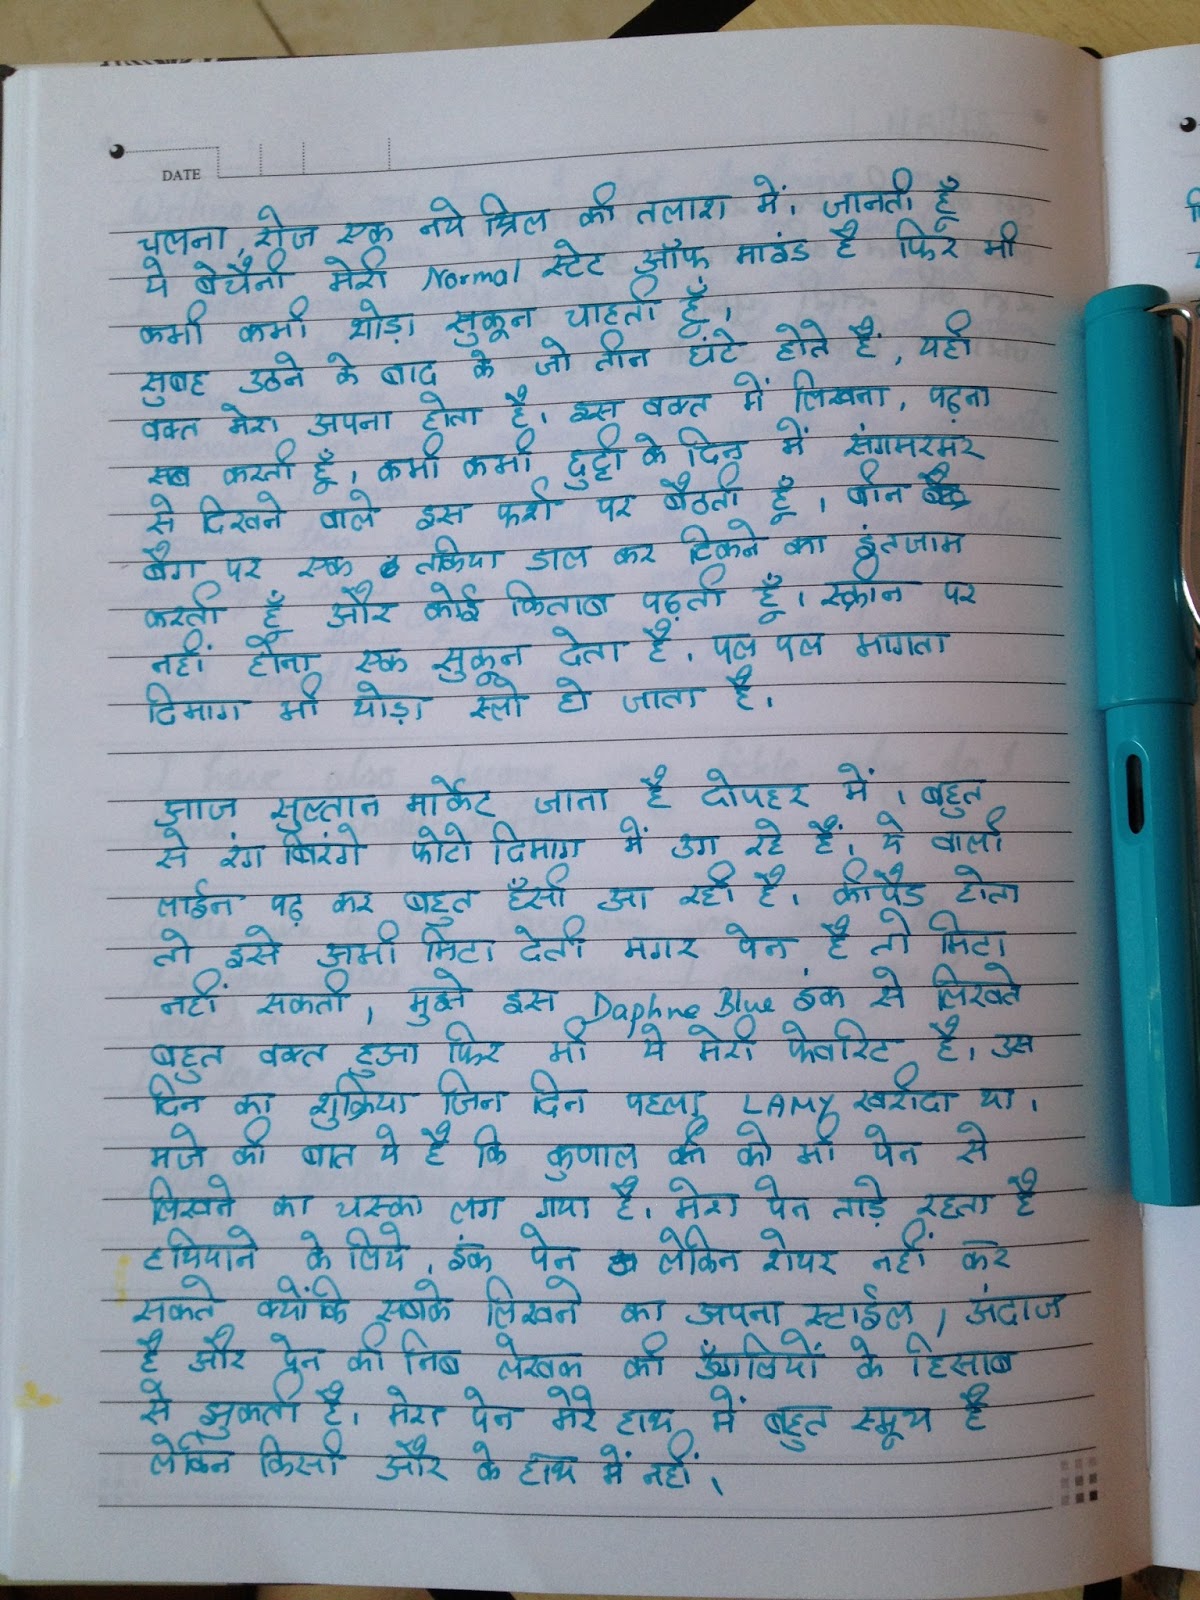 DATE
चलना, रोज एक नये थ्रिल की तलाश में। जानती हूँ
ये बेचैनी मेरी Normal स्टेट ऑफ माइंड है फिर भी
कभी कभी थोड़ा सुकून चाहती हूँ।
सुबह उठने के बाद के जो तीन घंटे होते हैं, यही
वक्त मेरा अपना होता है। इस वक्त में लिखना, पढ़ना
सब करती हूँ। कभी कभी छुट्टी के दिन में संगमरमर
से दिखने वाले इस फर्श पर बैठती हूँ, बीन
बैग पर एक तकिया डाल कर टिकने का इंतजाम
करती हूँ और कोई किताब पढ़ती हूँ। स्क्रीन पर
नहीं होना एक सुकून देता है, पल पल भागता
दिमाग भी थोड़ा स्लो हो जाता है।
आज सुल्तान मार्केट जाना है दोपहर में। बहुत
से रंग बिरंगे फोटो दिमाग में उग रहे हैं। ये वाली
लाईन पढ़ कर बहुत हँसी आ रही है। कीपैड होता
तो इसे अभी मिटा देती मगर पेन है तो मिटा
नहीं सकती, मुझे इस Daphne Blue इंक से लिखते
बहुत वक्त हुआ फिर भी ये मेरी फेवरिट है। उस
दिन का शुक्रिया जिन दिन पहला LAMY खरीदा था।
मजे की बात ये है कि कुणाल को भी पेन से
लिखने का चस्का लग गया है। मेरा पेन ताड़े रहता है
हथियाने के लिये, इंक पेन लेकिन शेयर नहीं कर
सकते क्योंकि सबके लिखने का अपना स्टाईल, अंदाज
है और पेन की निब लेखक की उँगलियों के हिसाब
से झुकती है। मेरा पेन मेरे हाथ में बहुत स्मूथ है
लेकिन किसी और के हाथ में नहीं,